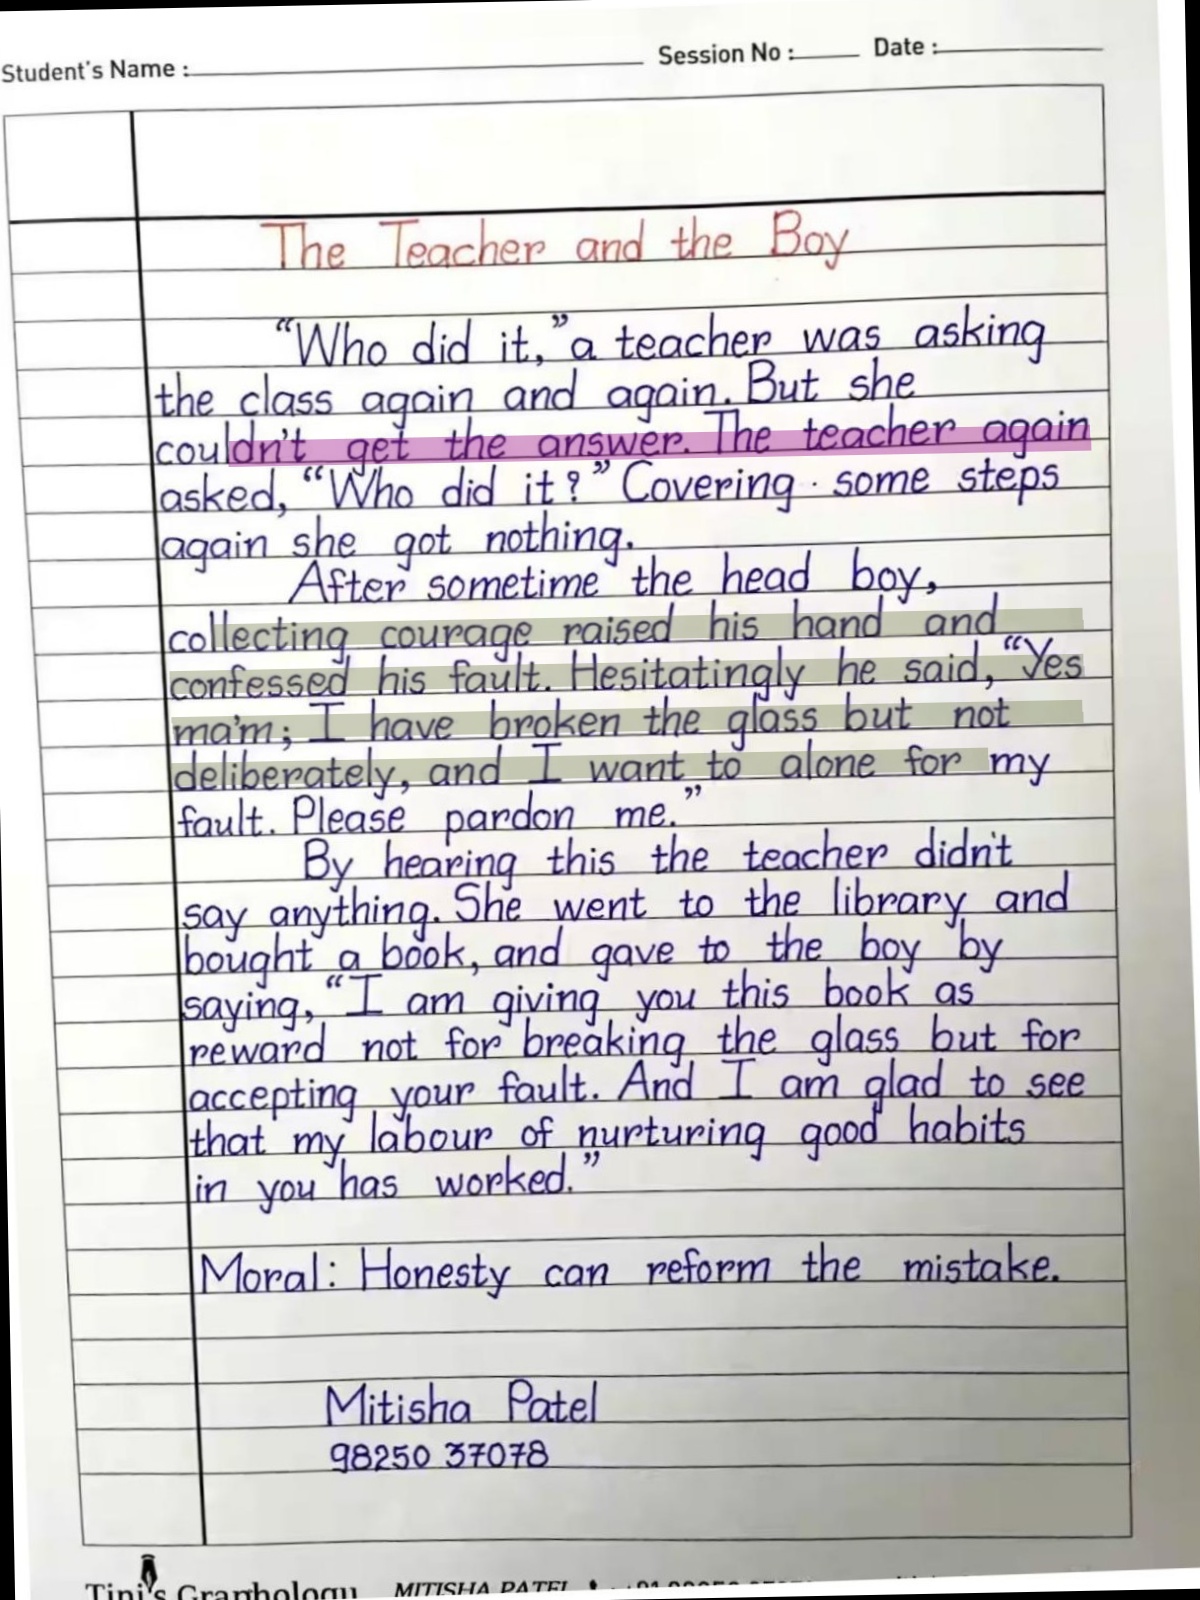 Student's Name : Session No : Date :
The Teacher and the Boy
“Who did it,” a teacher was asking
the class again and again. But she
couldn't get the answer. The teacher again
asked, “Who did it?” Covering some steps
again she got nothing.
After sometime the head boy,
collecting courage raised his hand and
confessed his fault. Hesitatingly he said, “Yes
ma'm; I have broken the glass but not
deliberately, and I want to alone for my
fault. Please pardon me.”
By hearing this the teacher didn't
say anything. She went to the library and
bought a book, and gave to the boy by
saying, “I am giving you this book as
reward not for breaking the glass but for
accepting your fault. And I am glad to see
that my labour of nurturing good habits
in you has worked.”
Moral: Honesty can reform the mistake.
Mitisha Patel
98250 37078
Tini's Graphology MITISHA PATEL